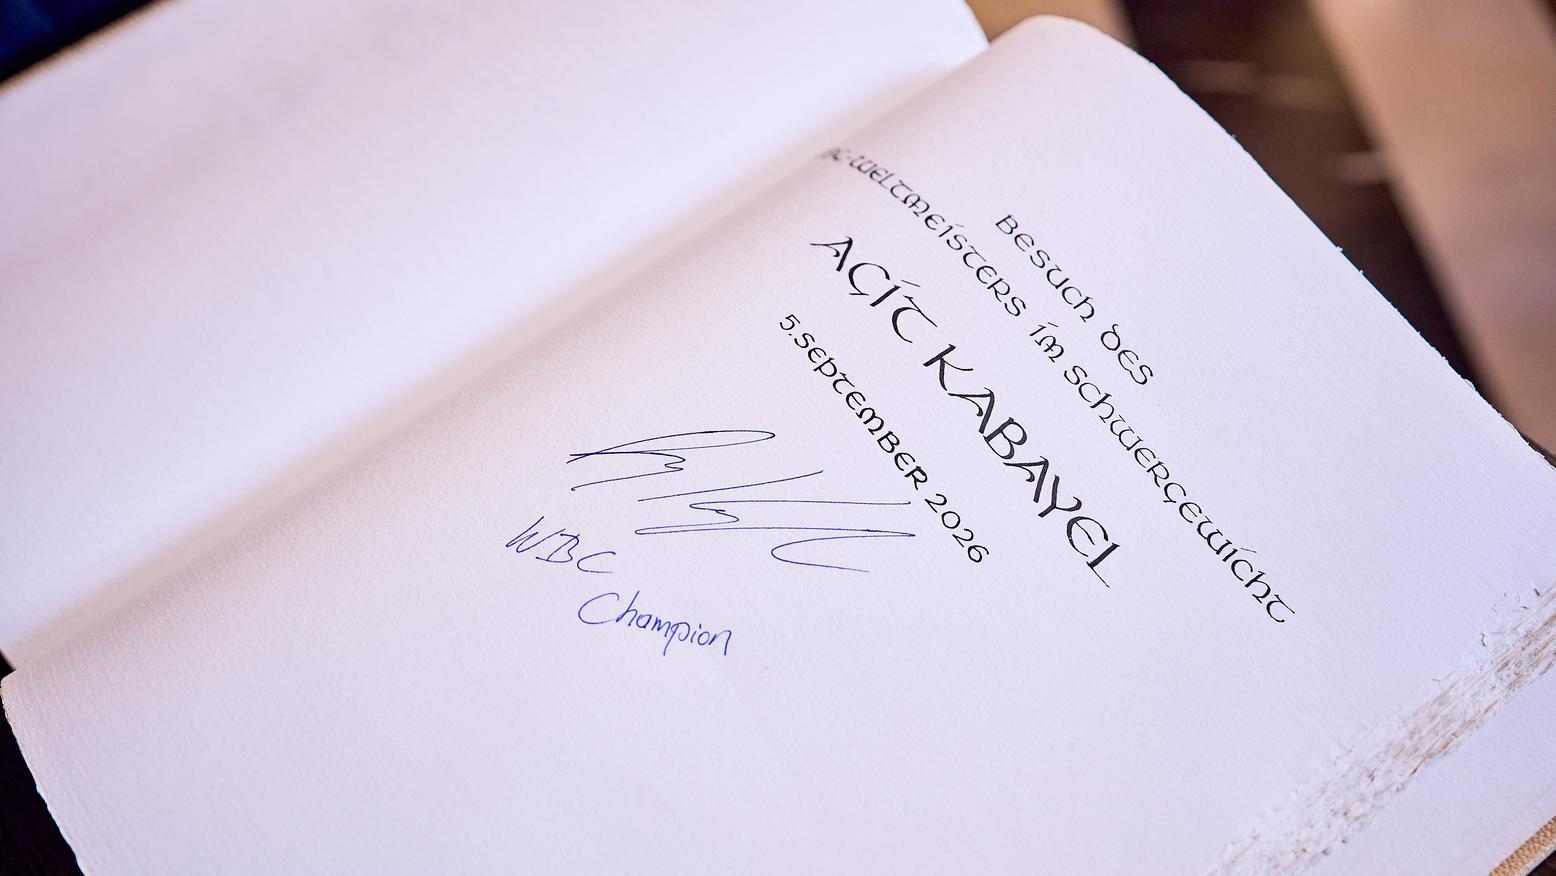 BESUCH DES
WBC-WELTMEISTERS IM SCHWERGEWICHT
AGIT KABAYEL
5. SEPTEMBER 2026
WBC
Champion